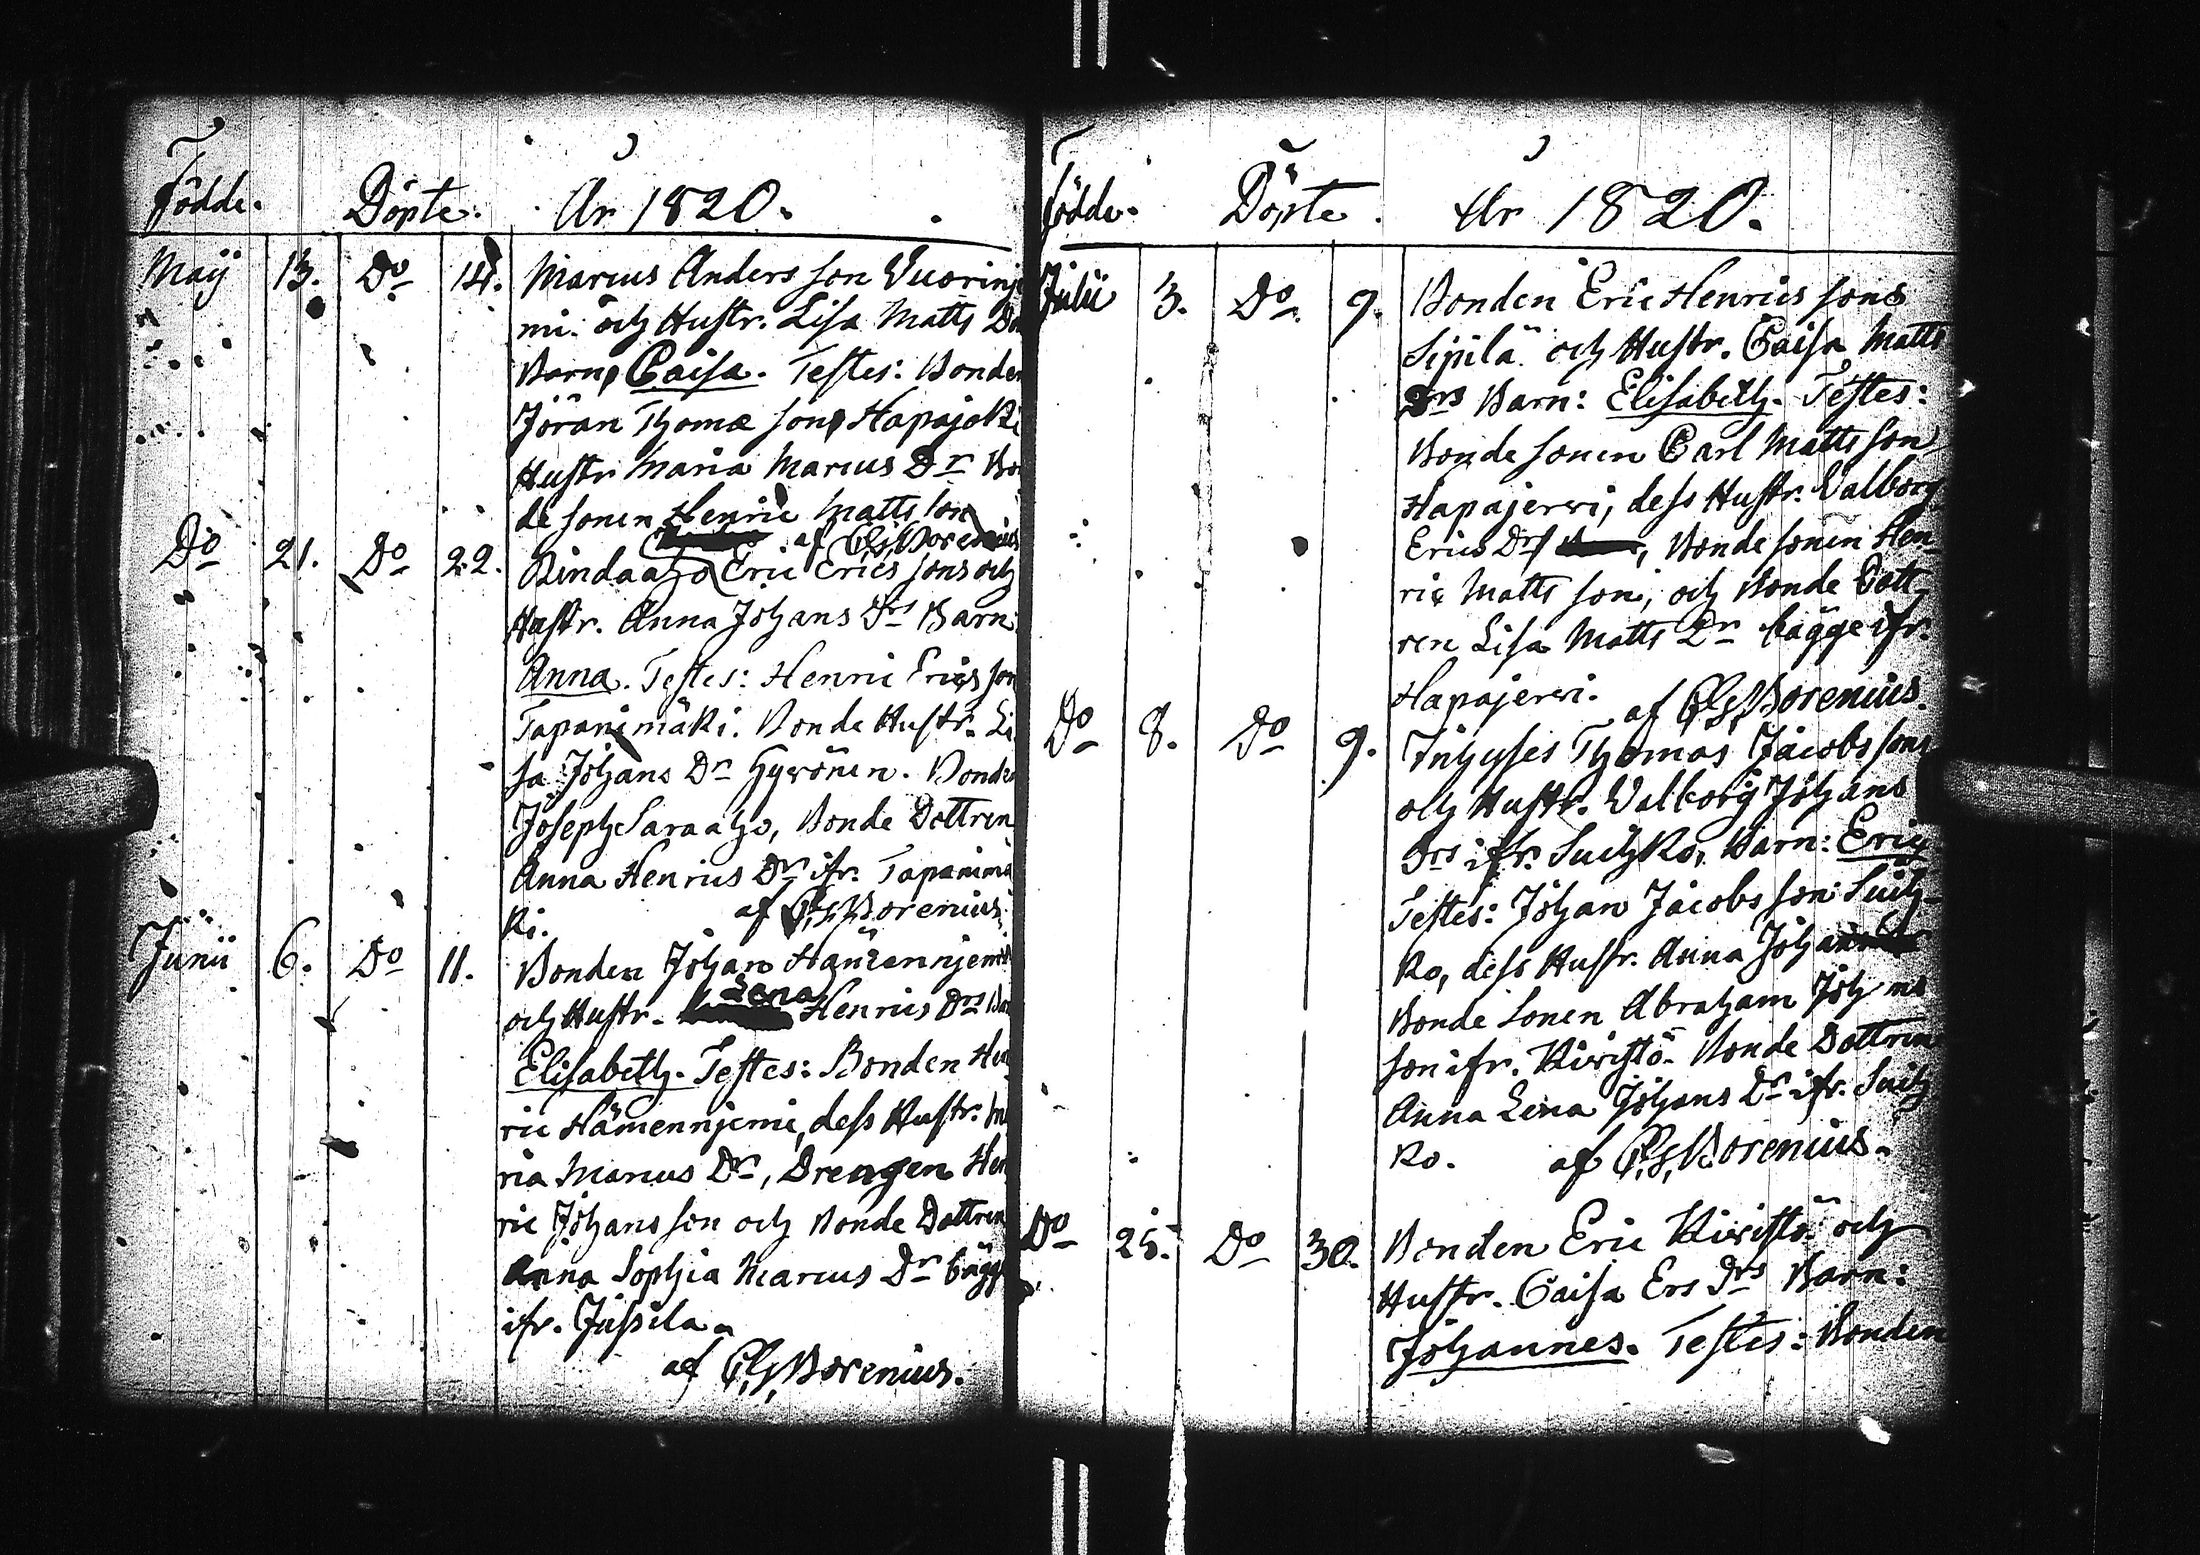 Födde. Döpte. År 1820.
Maij 13. Do 14. Marcus Anders son Vuorinje
mi. och Hustr. Lisa Matts
Barn, Caisa. Testes: Bonden
Jöran Thomæ son Hapajoki
Hustr Maria Marcus Dr Bon
de sonen Henric Matts son
af C.G. Borenius
Do 21. Do 22. Rindaaho Eric Erics sons och
Hustr. Anna Johans Drs Barn
Anna. Testes: Henric Erics son
Tapanimäki. Bonde Hustr. Li
sa Johans Dr Hyvönen. Bonden
Joseph Saraaho, Bonde Dottren
Anna Henrics Dr ifr. Tapanimä
ki. af C.G. Borenius.
Junii 6. Do 11. Bonden Johan Hämennjemi
och Hustr. Lena Henrics Drs
Elisabeth. Testes: Bonden Hen
ric Hämennjemi, dess Hustr. Ma
ria Marcus Dr, Drengen Hen
ric Johans son och Bonde Dottren
Anna Sophia Marcus Dr bägge
ifr. Jussila.
af C.G. Borenius.
Födde. Döpte. År 1820.
Julii 3. Do 9. Bonden Eric Henrics sons
Sipilä och Hustr. Caisa Matts
Drs Barn: Elisabeth. Testes:
Bonde sonen Carl Matts son
Hapajerwi, dess Hustr. Valborg
Erics Dr, Bonde sonen Hen
ric Matts son, och Bonde Dott
ren Lisa Matts Dr bägge ifr.
Hapajerwi. af C.G. Borenius.
Do 8. Do 9. Inhyses Thomas Jacobs sons
och Hustr. Valborg Johans
Drs ifr. Suihko, Barn: Eric
Testes: Johan Jacobs son Suih
ko, dess Hustr. Anna
Bonde Sonen Abraham Johans
son ifr. Kivistö. Bonde Dottren
Anna Lena Johans Dr ifr. Suih
ko. af C.G. Borenius.
Do 25. Do 30. Bonden Eric Kivistö och
Hustr. Caisa Ers Drs Barn:
Johannes. Testes: Bonden